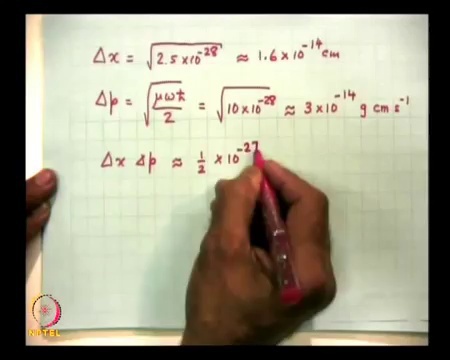 Δx = √2.5×10⁻²⁸ ≈ 1.6×10⁻¹⁴ cm
Δp = √(μωħ/2) = √10×10⁻²⁸ ≈ 3×10⁻¹⁴ g cm s⁻¹
Δx Δp ≈ 1/2 × 10⁻²⁷
NPTEL